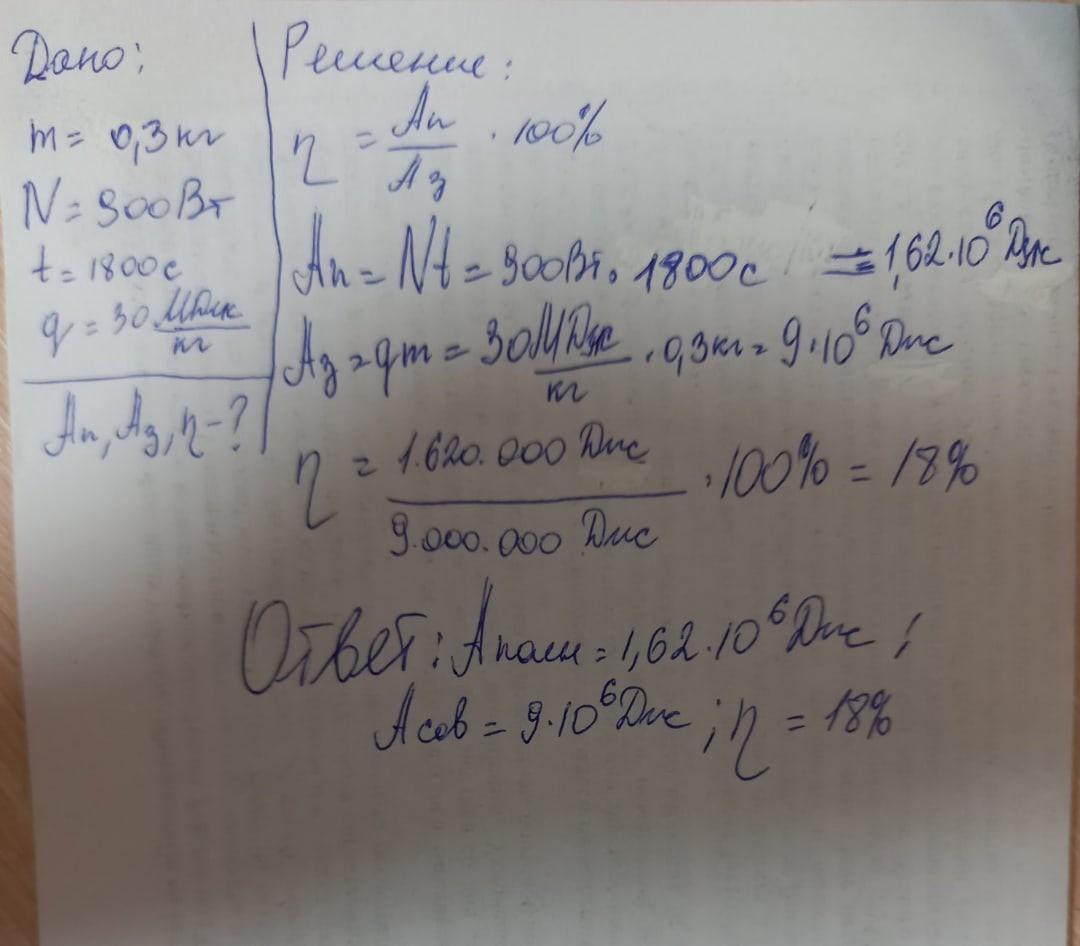 Дано:
m = 0,3 кг
N = 900Вт
t = 1800с
q = 30 МДж/кг
Aп, Aз, η - ?
Решение:
η = Aп/Aз · 100%
Aп = Nt = 900Вт · 1800с = 1,62·10⁶ Дж
Aз = qm = 30 МДж/кг · 0,3кг = 9·10⁶ Дж
η = 1.620.000 Дж/9.000.000 Дж · 100% = 18%
Ответ: Aполн = 1,62·10⁶ Дж ;
Aсов = 9·10⁶ Дж ; η = 18%